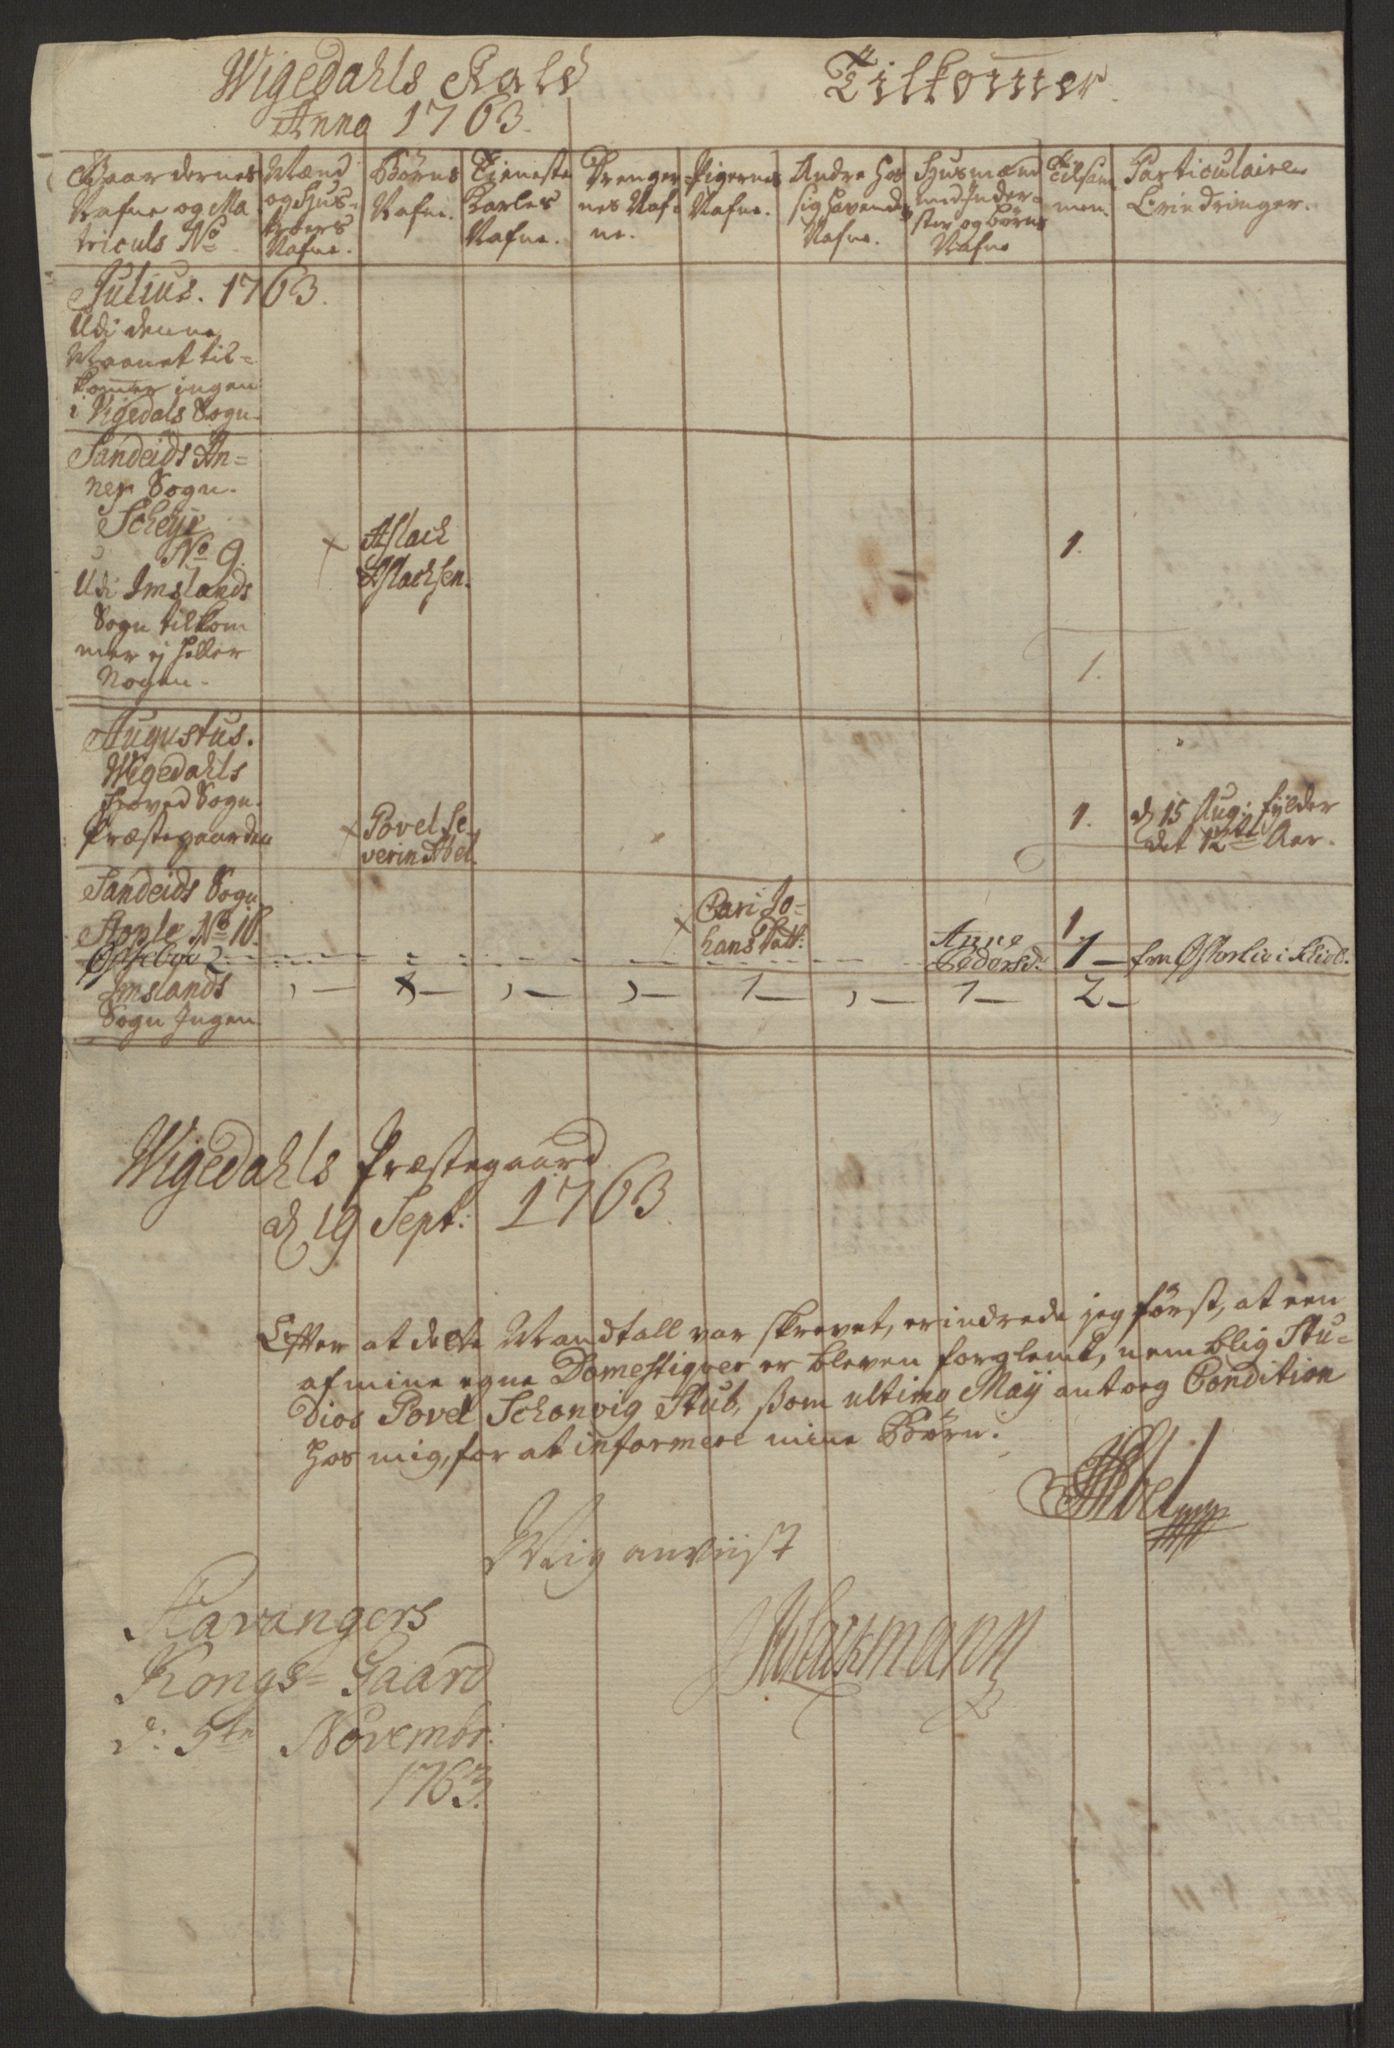 Wigedahls Kald
Anno 1763.
Tilkommer
Gaardernes Nafne og Matriculs No
Mænd og Hus- Nafne.
Börns Nafne.
Tieneste Karles Nafne.
Drengernes Nafne.
Pigernes Nafne.
Andre hos sig havende Nafne.
Husmænd med Inderster og börns Nafne
Tilsammen.
Particulaire Erindringer.
Julius. 1763.
Udi denne
Maanet til-
kommer ingen
i Vigedals Sogn.
Sandeids An-
nex Sogn.
No 9.
Aslach
Aslachsen.
1.
Udi Imslands
Sogn tilkom
mer ej heller
Nogen.
1.
Augustus.
Wigedahls
Hoved Sogn.
Præstegaarden
Povel Se-
verin Abel.
1.
d 15 Aug: fylder
det 12te Aar.
Sandeids Sogn
No 10.
Cari Jo-
hans Datt:
1.
Anne
Pedersd:
1
fra
Imslands
Sogn Ingen.
1
1
2
Wigedahls Præstegaard
d 19 Sept: 1763.
Efter at dette Mandtall var skrevet, erindrede jeg först, at een
af mine egne Domestiqver er bleven forglemt, nemblig Stu-
dios Povel Schonvig Stub, som ultimo Maij antog Condition
hos mig, for at informere mine Börn.
Abel
Mig anviist
Stavangers
Kongs-Gaard
d: 5te Novembr:
1763.